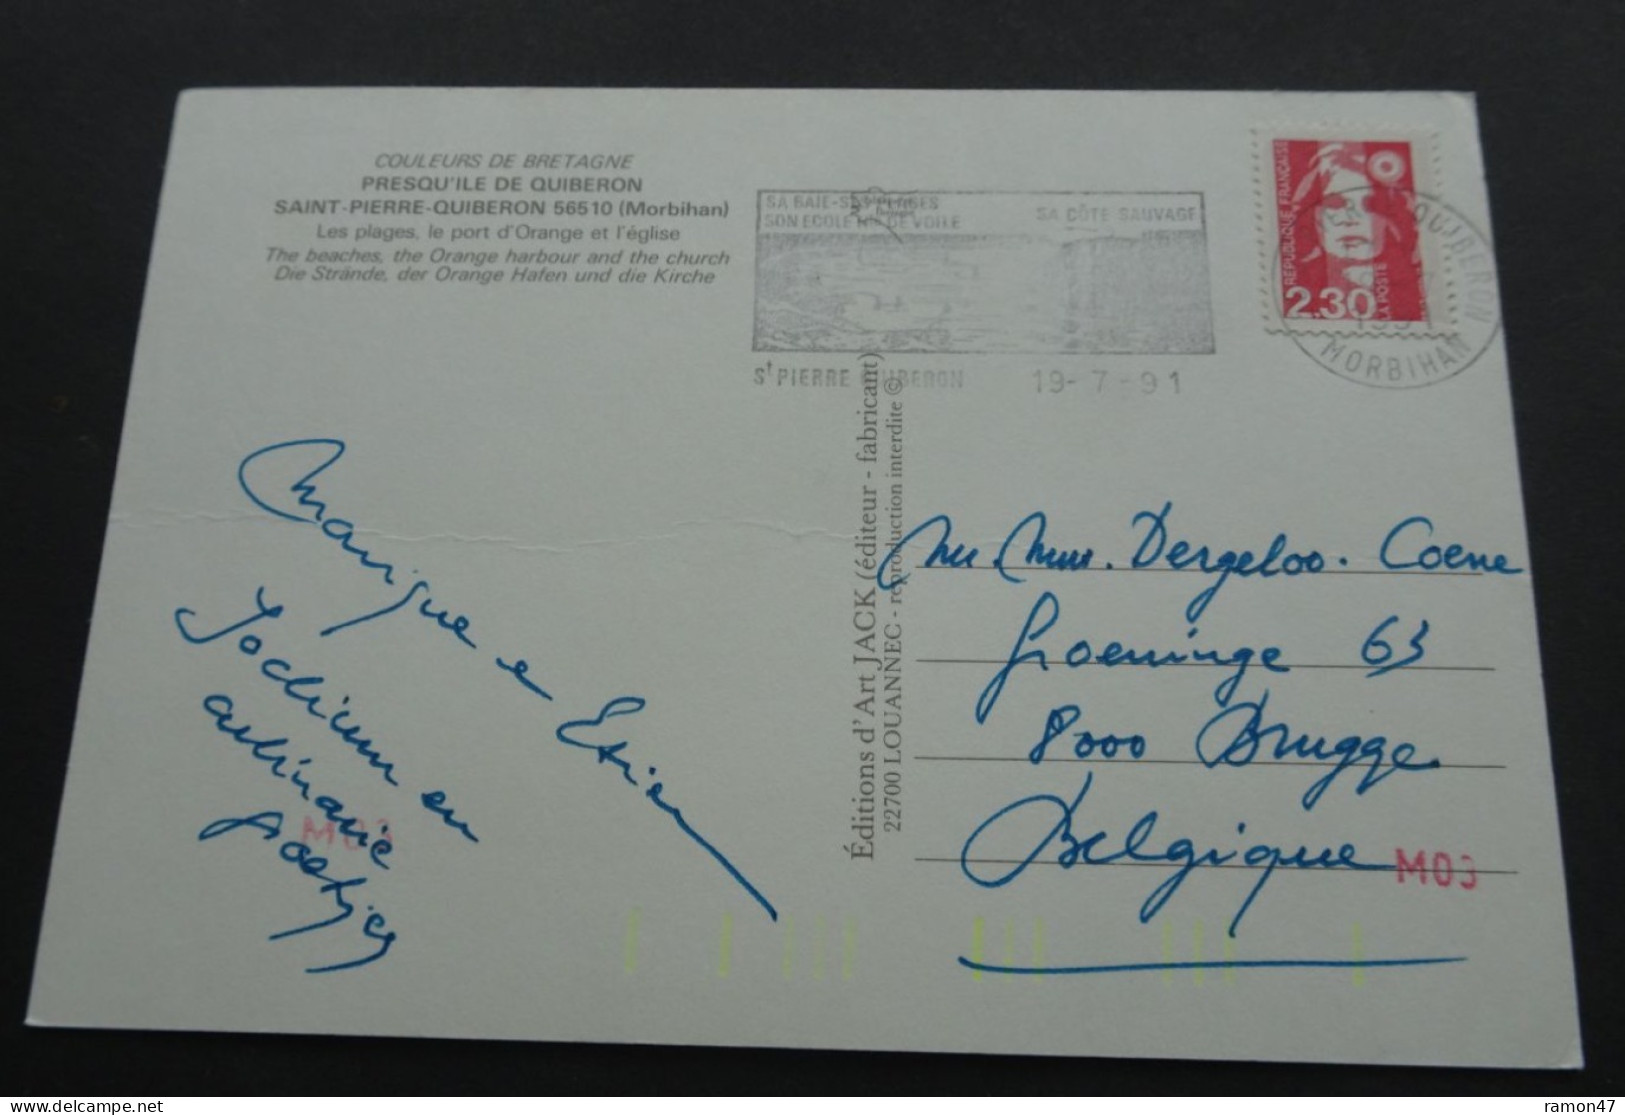 COULEURS DE BRETAGNE
PRESQU'ILE DE QUIBERON
SAINT-PIERRE-QUIBERON 56510 (Morbihan)
Les plages, le port d'Orange et l'église
The beaches, the Orange harbour and the church
Die Strände, der Orange Hafen und die Kirche
SA BAIE-SES PLAGES
SON ECOLE Nle DE VOILE
SA CÔTE SAUVAGE
St PIERRE QUIBERON 19-7-91
RÉPUBLIQUE FRANÇAISE
2,30
LA POSTE
QUIBERON
MORBIHAN
Éditions d'Art JACK (éditeur - fabricant)
22700 LOUANNEC - reproduction interdite ©
Monique e Etien
Jochium en
culinaire
groetjes
M03
Mr Mme. Dergeloo. Coene
Groeninge 63
8000 Brugge
Belgique
M03
ramon47